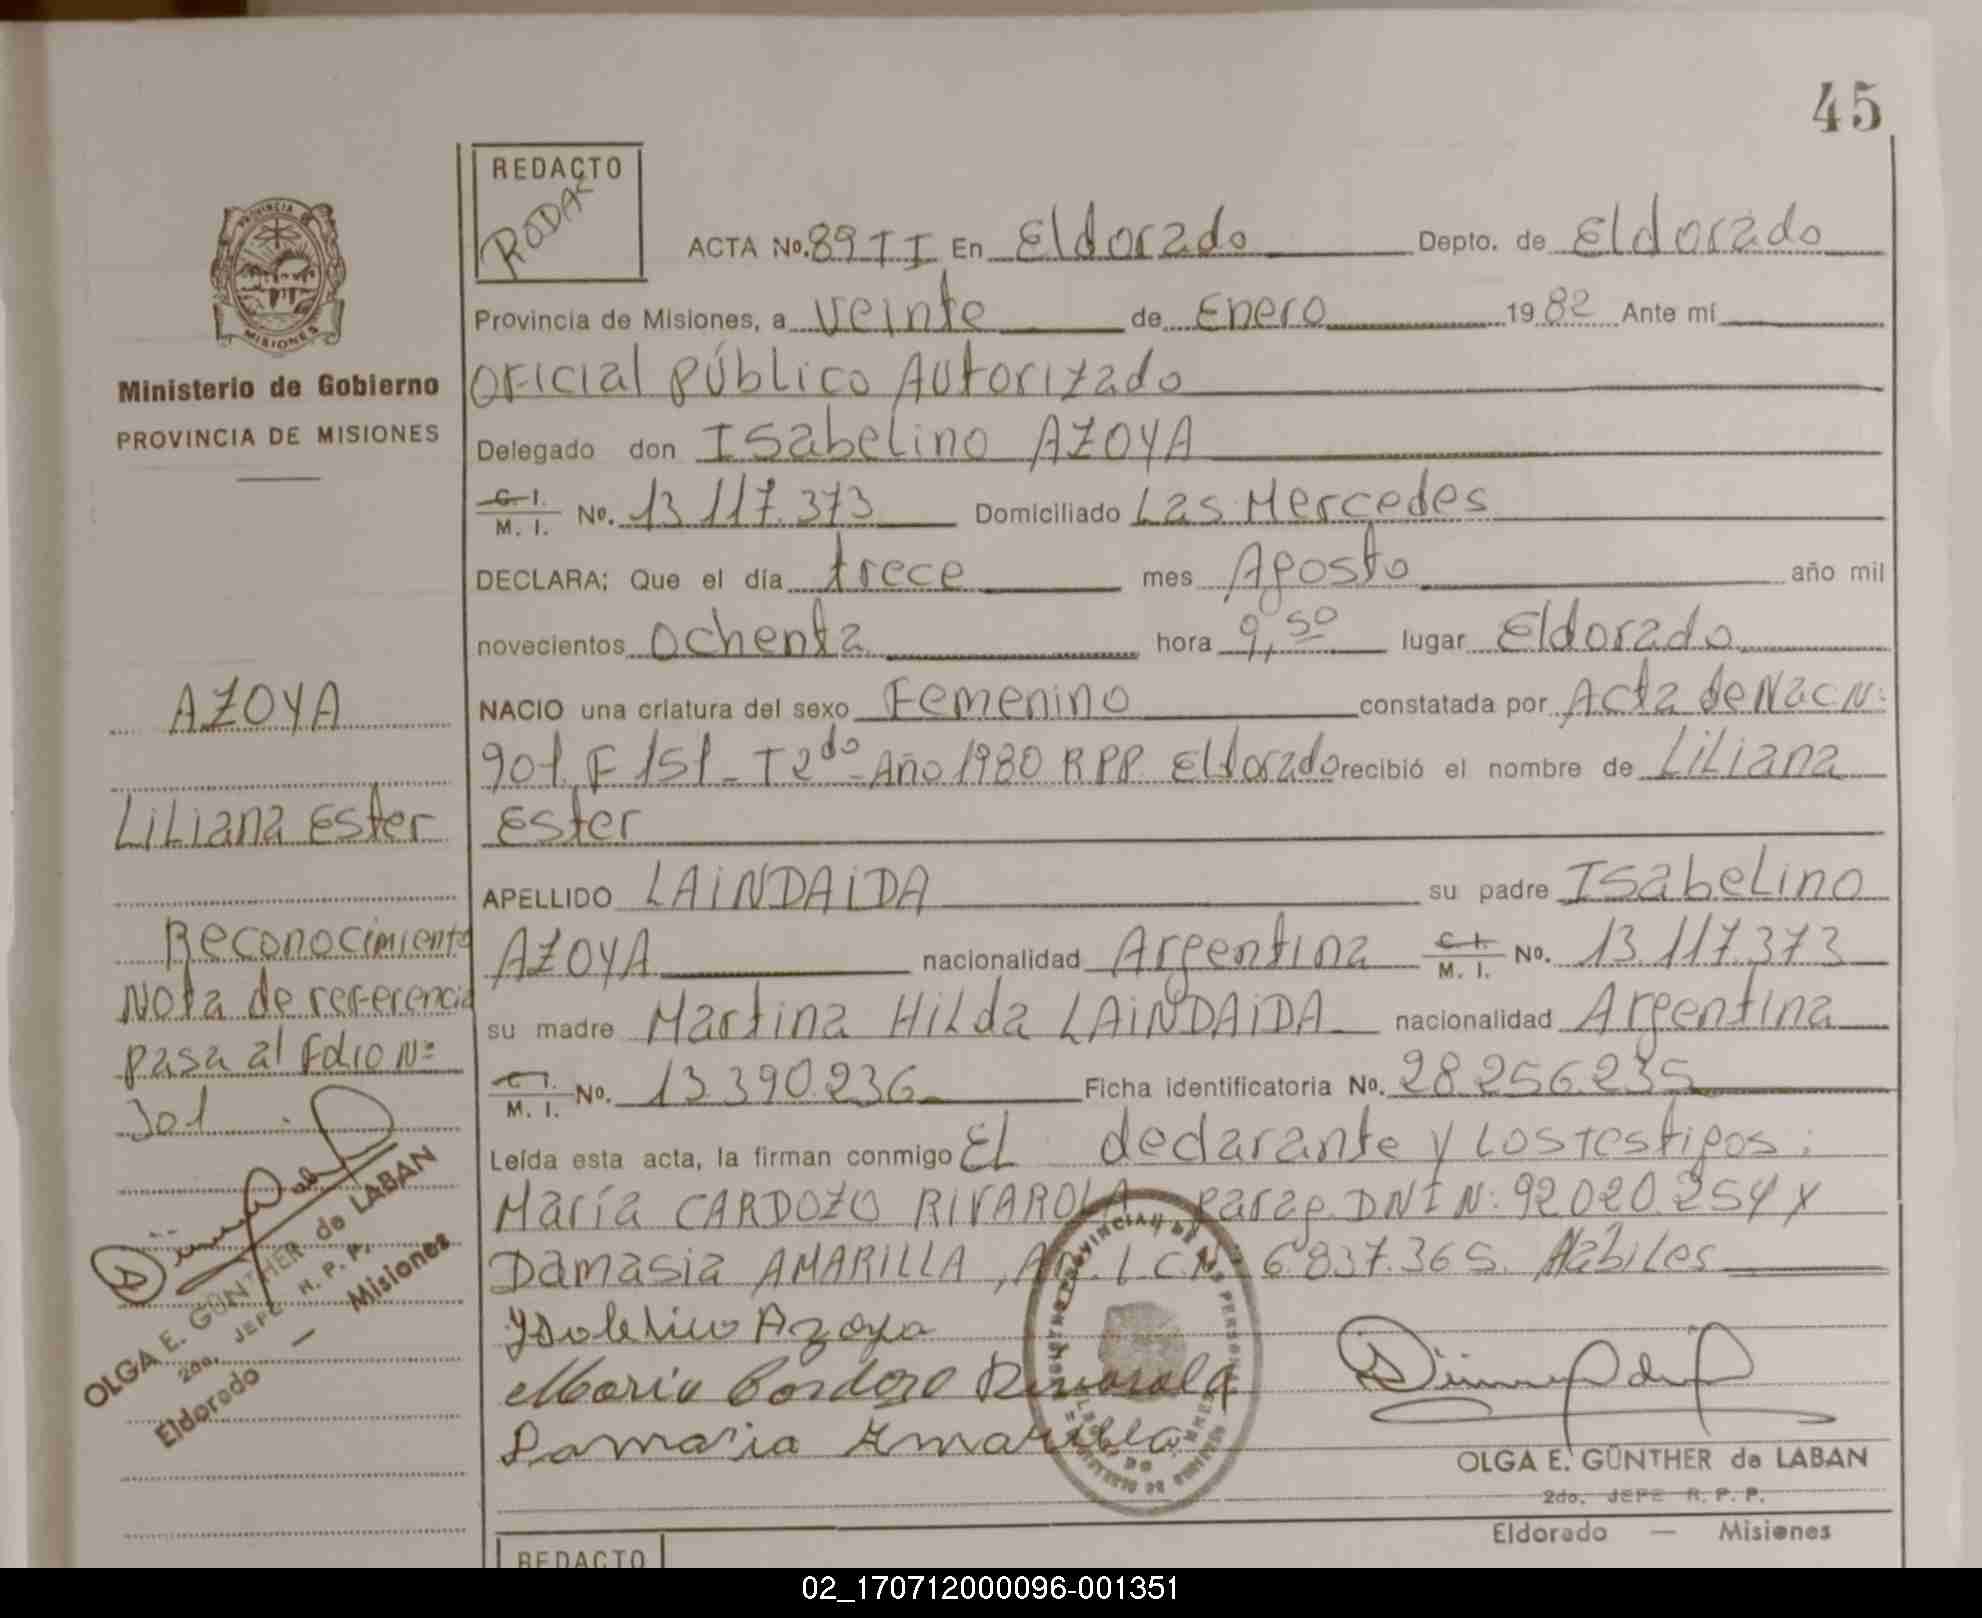 45
REDACTO
RODAK
PROVINCIA DE
MISIONES
Ministerio de Gobierno
PROVINCIA DE MISIONES
ACTA No. 89 TI En Eldorado Depto. de Eldorado
Provincia de Misiones, a veinte de Enero 1982 Ante mí
Oficial público Autorizado
Delegado don Isabelino AZOYA
C. I.
M. I. No. 13.117.373 Domiciliado Las Mercedes
DECLARA: Que el día trece mes Agosto año mil
novecientos Ochenta hora 9,50 lugar Eldorado
NACIO una criatura del sexo Femenino constatada por Acta de Nac N:
901. F 151 - T 2do - Año 1980 RPP. Eldorado recibió el nombre de Liliana
Ester
APELLIDO LAINDAIDA su padre Isabelino
AZOYA nacionalidad Argentina C. I. M. I. No. 13.117.373
su madre Martina Hilda LAINDAIDA nacionalidad Argentina
C. I.
M. I. No. 13.390.236 Ficha identificatoria No. 28.256.235
Leída esta acta, la firman conmigo El declarante y los testigos:
María CARDOZO RIVAROLA parag. DNI N: 92020.254 y
Damasia AMARILLA, Ar. L.C.N: 6.837.365. Habiles
Ysolelino Azoya
Maria Cardozo Rivarola
Damasia Amarilla
OLGA E. GÜNTHER de LABAN
2do. JEFE R. P. P.
Eldorado — Misiones
AZOYA
Liliana Ester
Reconocimiento
Nota de referencia
pasa al Folio N:
301
OLGA E. GÜNTHER de LABAN
2do. JEFE R. P. P.
Eldorado — Misiones
REDACTO
02_170712000096-001351